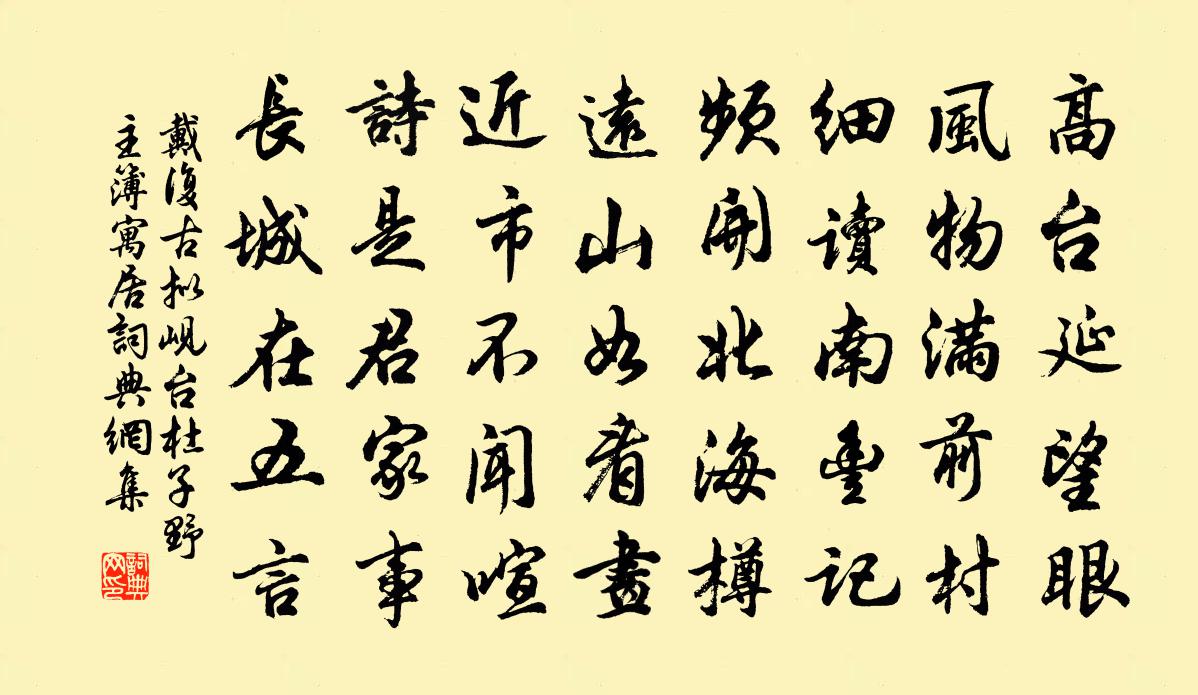 高台延望眼
風物滿前村
細讀南豊記
頻開北海樽
遠山如看畫
近市不聞喧
詩是君家事
長城在五言
戴復古拟峴台杜子野
主簿寓居詞典網集
詞典
网印